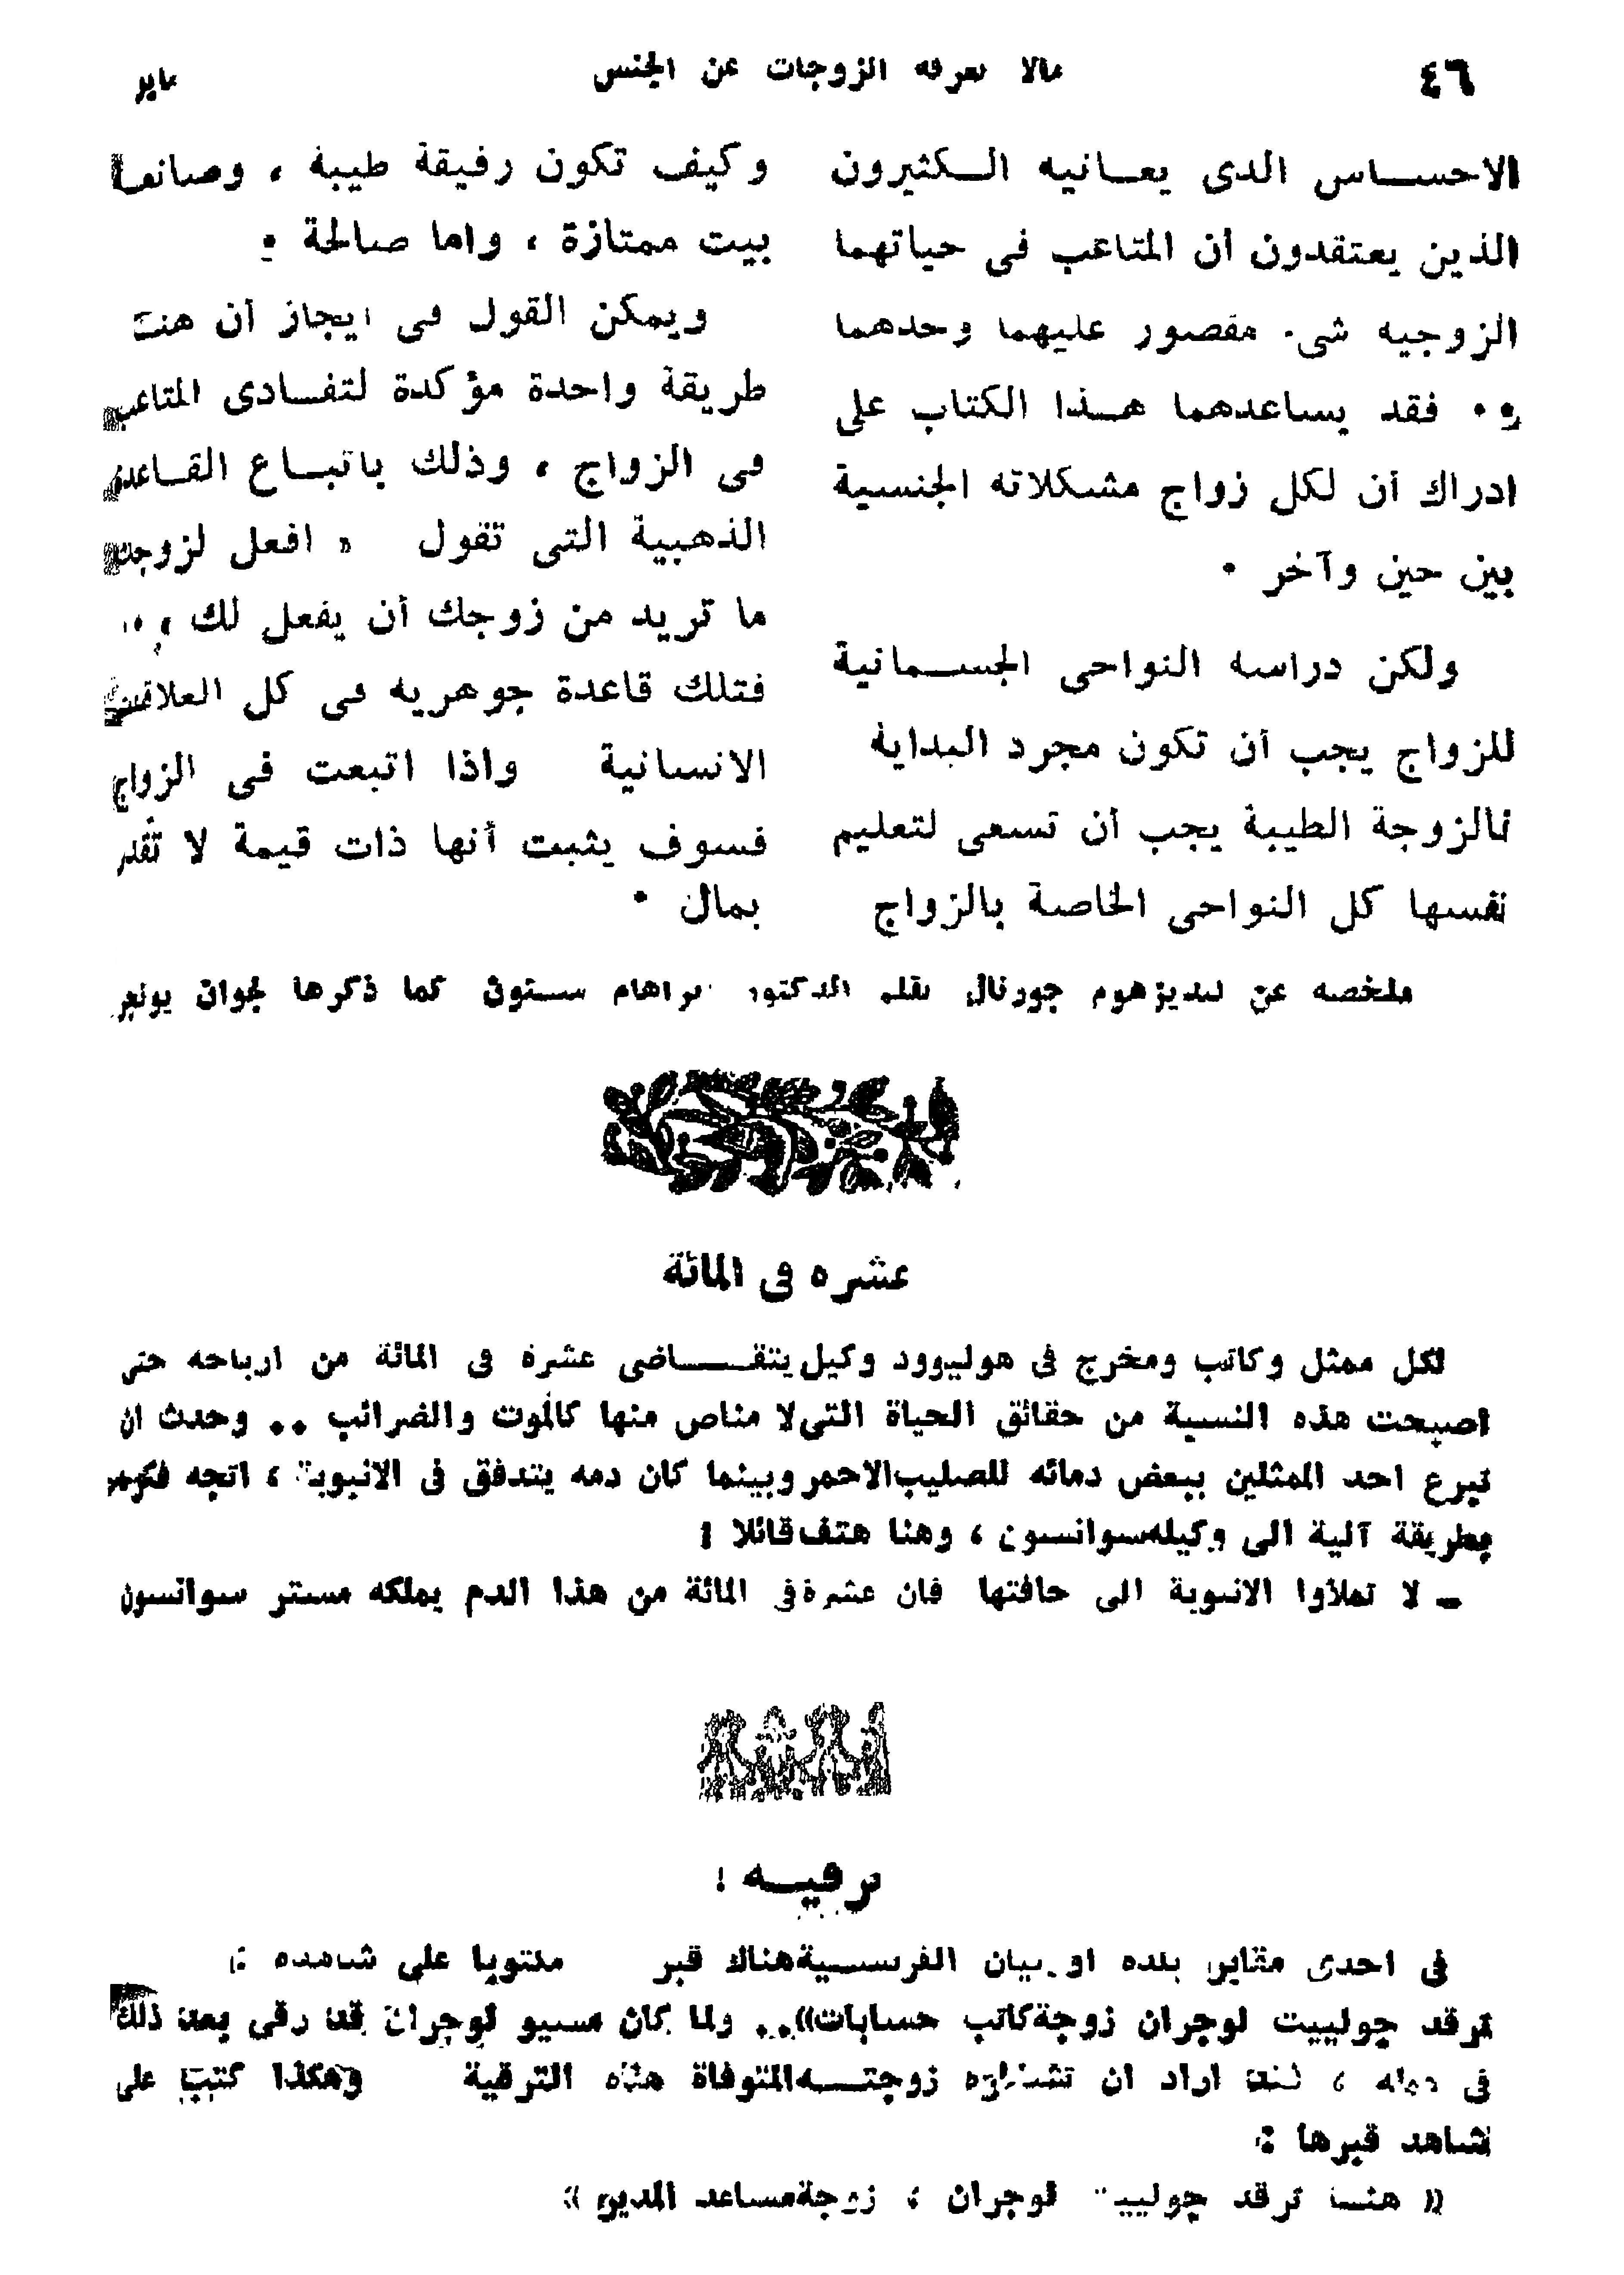 ٤٦
مالا تعرفه الزوجات عن الجنس
ماير
الاحساس الذى يعانيه الكثيرون
الذين يعتقدون أن المتاعب فى حياتهما
الزوجيه شىء مقصور عليهما وحدهما
٠٠ فقد يساعدهما هذا الكتاب على
ادراك أن لكل زواج مشكلاته الجنسية
بين حين وآخر ٠
ولكن دراسه النواحى الجسمانية
للزواج يجب أن تكون مجرد البداية
فالزوجة الطيبة يجب أن تسعى لتعليم
نفسها كل النواحى الخاصة بالزواج
وكيف تكون رفيقة طيبة ، وصانعة
بيت ممتازة ، واما صالحة ٠
ويمكن القول فى ايجاز أن هناك
طريقة واحدة مؤكدة لتفادى المتاعب
فى الزواج ، وذلك باتباع القاعدة
الذهبية التى تقول « افعل لزوجك
ما تريد من زوجك أن يفعل لك »
فتلك قاعدة جوهريه فى كل العلاقات
الانسانية واذا اتبعت فى الزواج
فسوف يثبت أنها ذات قيمة لا تقدر
بمال ٠
ملخصه عن ليديز هوم جورنال بقلم الدكتور ابراهام ستون كما ذكرها لجوان يونجر
عشره فى المائة
لكل ممثل وكاتب ومخرج فى هوليوود وكيل يتقاضى عشرة فى المائة من ارباحه حتى
اصبحت هذه النسبة من حقائق الحياة التى لا مناص منها كالموت والضرائب .. وحدث ان
تبرع احد الممثلين ببعض دمائه للصليب الاحمر وبينما كان دمه يتدفق فى الانبوبة ، اتجه فكره
بطريقة آلية الى وكيله سوانسون ، وهنا هتف قائلا :
ـ لا تملأوا الانبوبة الى حافتها فان عشرة فى المائة من هذا الدم يملكه مستر سوانسون
ترقيه !
فى احدى مقابر بلده الفرنسية هناك قبر مكتوبا على شاهده :
ترقد جولييت لوجران زوجة كاتب حسابات» .. ولما كان مسيو لوجران قد رقى بعد ذلك
فى عمله ، فقد اراد ان تشاركه زوجته المتوفاة هذه الترقية وهكذا كتب على
شاهد قبرها :
« هنا ترقد جولييت لوجران ، زوجة مساعد المدير »